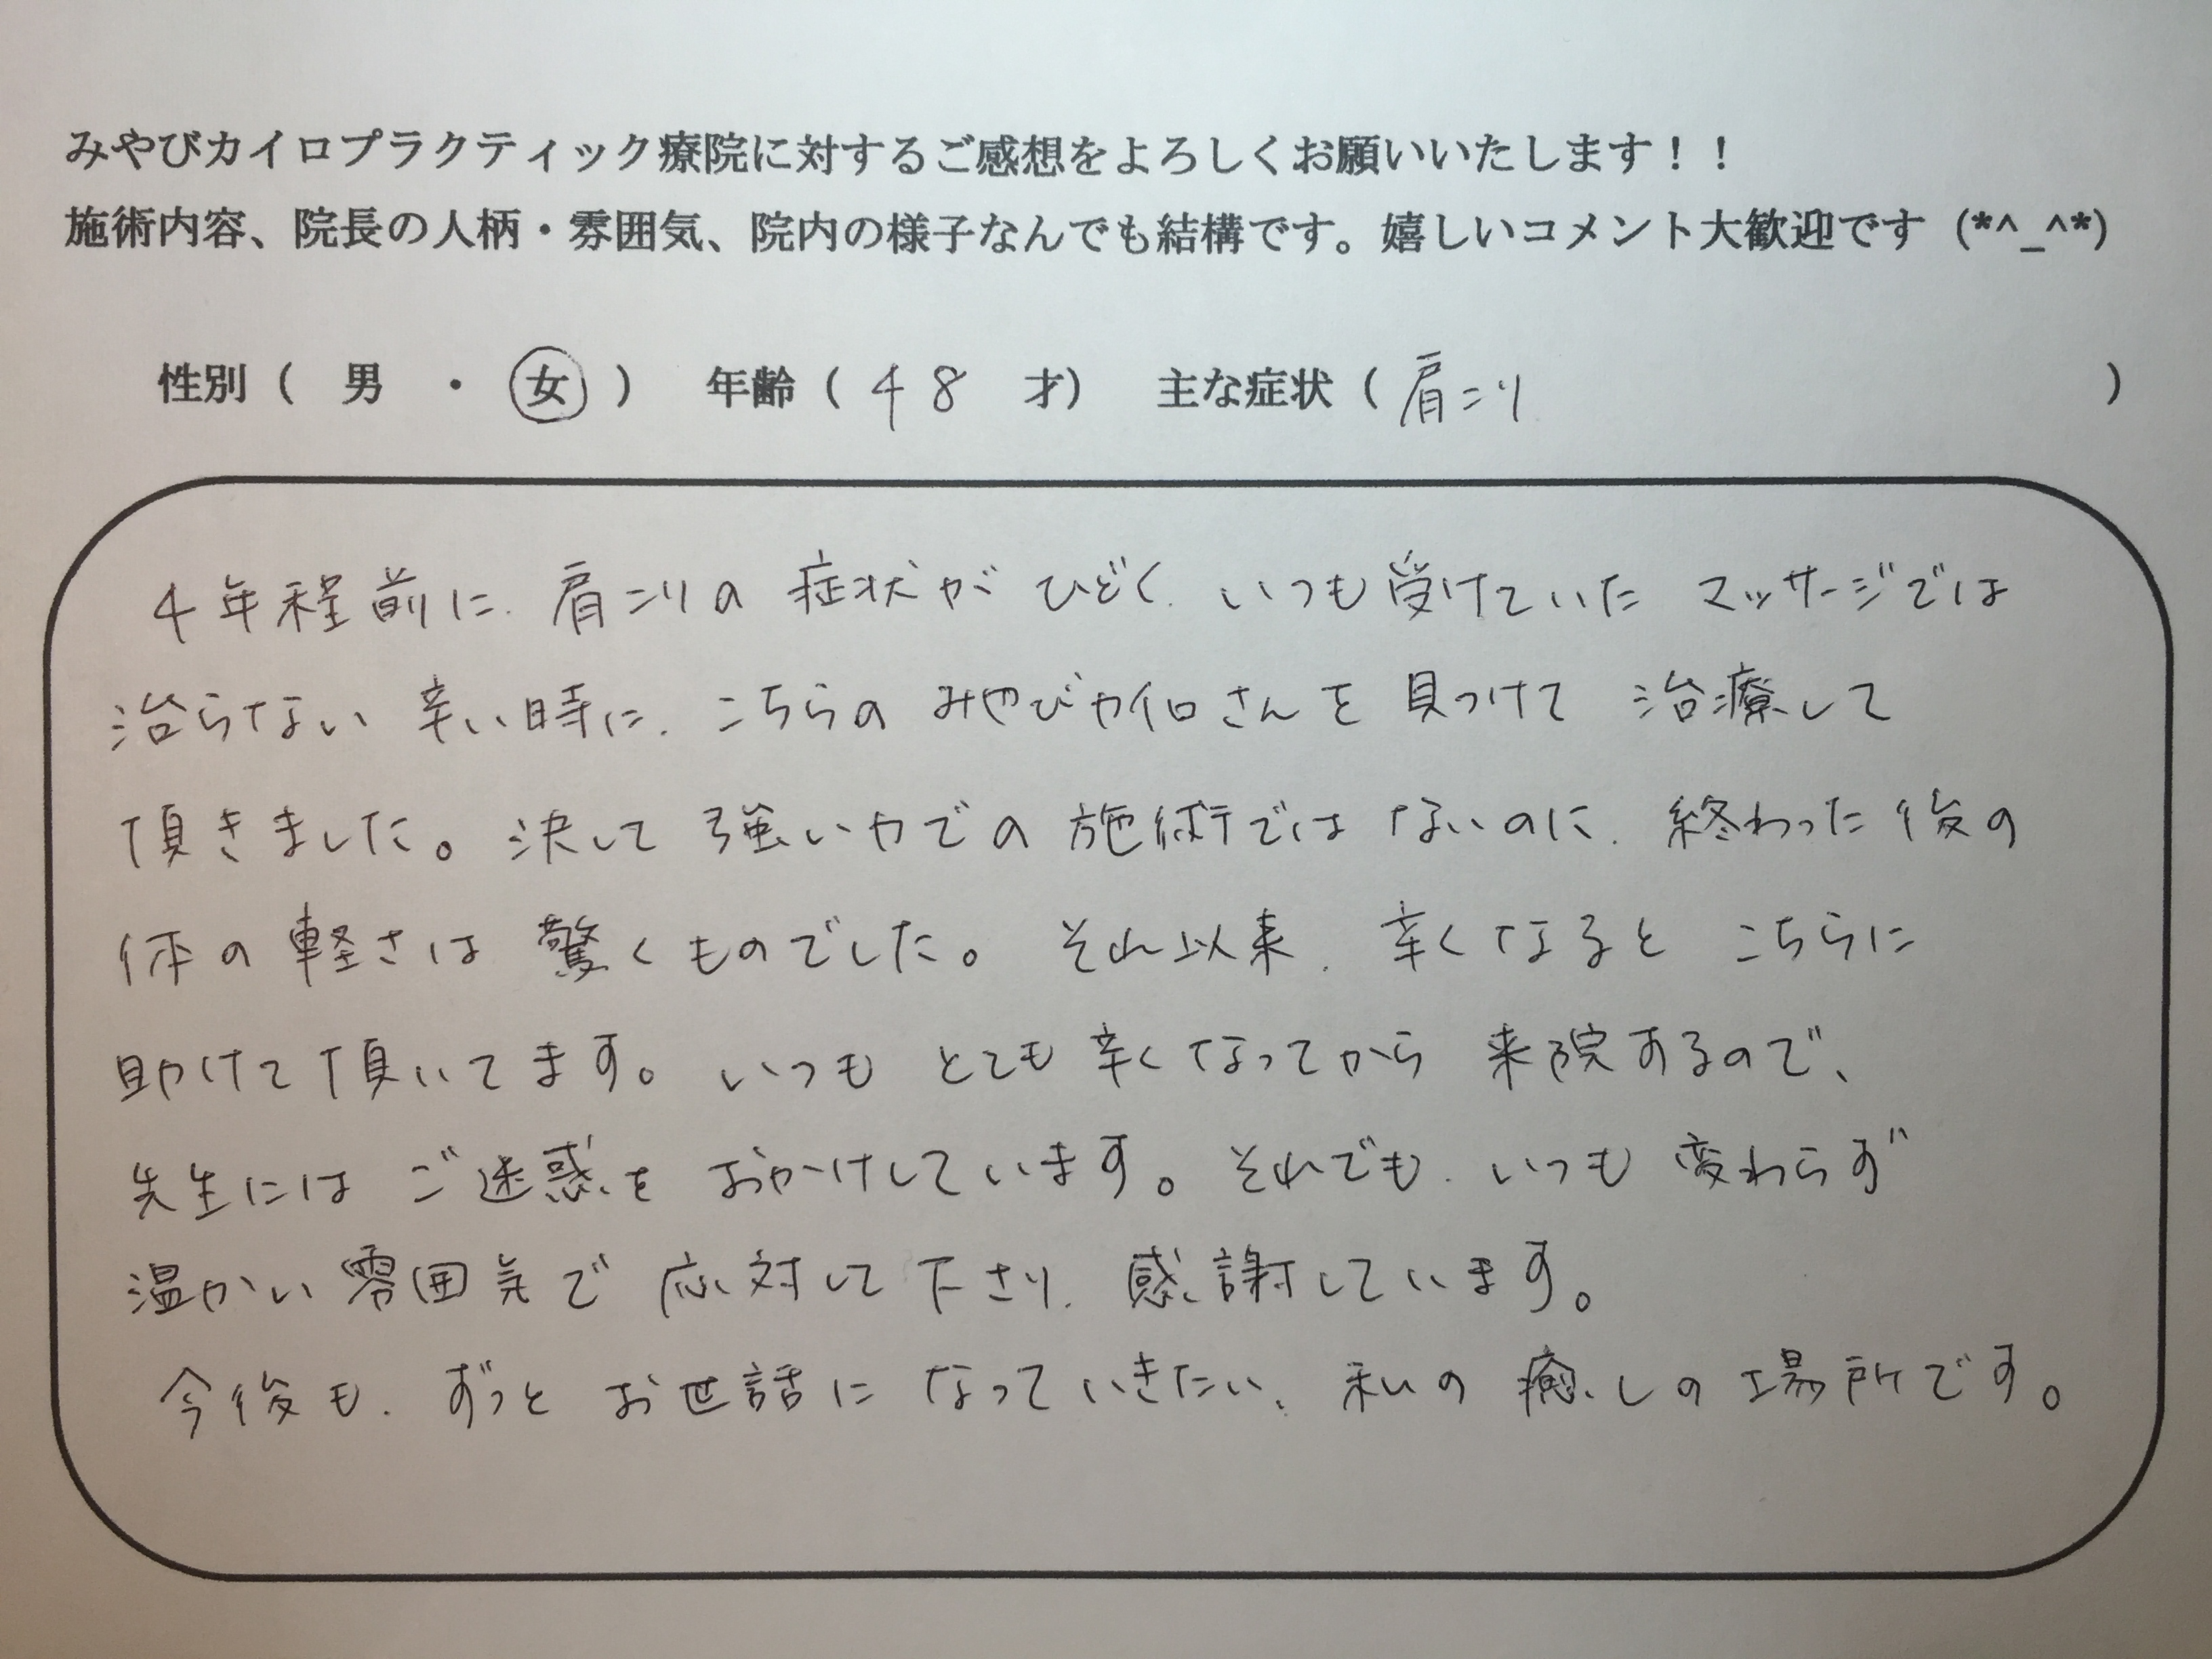 みやびカイロプラクティック療院に対するご感想をよろしくお願いいたします！！
施術内容、院長の人柄・雰囲気、院内の様子なんでも結構です。嬉しいコメント大歓迎です（*^_^*）
性別（　男　・　女　）　年齢（ 48　才）　主な症状（ 肩こり　）
4年程前に、肩こりの症状がひどく、いつも受けていたマッサージでは
治らない辛い時に、こちらのみやびカイロさんを見つけて治療して
頂きました。決して強い力での施術ではないのに、終わった後の
体の軽さは驚くものでした。それ以来、辛くなるとこちらに
助けて頂いてます。いつもとても辛くなってから来院するので、
先生にはご迷惑をおかけしています。それでも、いつも変わらず
温かい雰囲気で応対して下さり、感謝しています。
今後も、ずっとお世話になっていきたい、私の癒しの場所です。